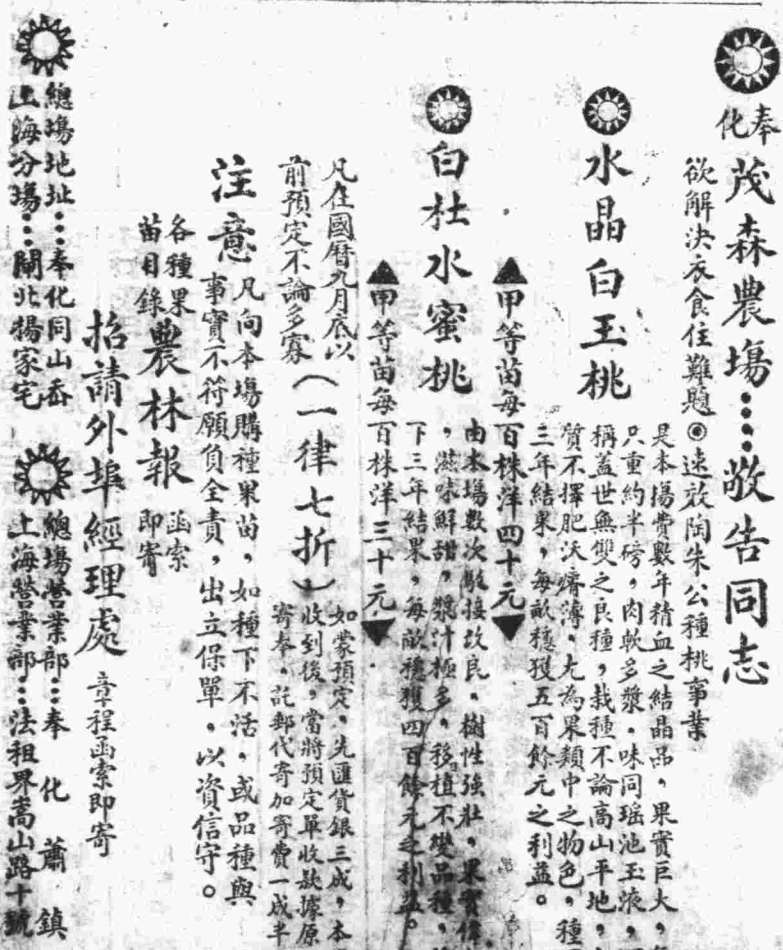 奉化
茂森農場⋮⋮敬告同志
欲解決衣食住難題◎速效陶朱公種桃事業
水晶白玉桃
是本場費數年精血之結晶品，果實巨大，
只重約半磅，肉軟多漿．味同瑶池玉液，
稱蓋世無雙之良種，栽種不論高山平地，
質不擇肥沃瘠薄．尤為果類中之物色，種
三年結果，每畝穩獲五百餘元之利益。
▲甲等苗每百株洋四十元▼
白杜水蜜桃
由本場數次敵接改良．樹性強壯，果實偉
，滋味鮮甜，漿汁極多．移植不變品種，
下三年結果，每畝穩獲四百餘元之利益。
▲甲等苗每百株洋三十元▼
凡在國曆九月底以
前預定不論多寡
（一律七折）
如蒙預定．先匯貨銀三成，本
收到後，當將預定單收款據原
寄奉．託郵代寄加寄費一成半
注意
凡向本場購種果苗，如種下不活，或品種與
事實不符願負全責，出立保單．以資信守。
各種果
苗目錄
農林報
函索
即寄
招請外埠經理處
章程函索即寄
總場地址⋮⋮奉化同山岙
上海分場⋮⋮閘北楊家宅
總場營業部⋮⋮奉化蕭鎮
上海營業部⋮⋮法租界嵩山路十號